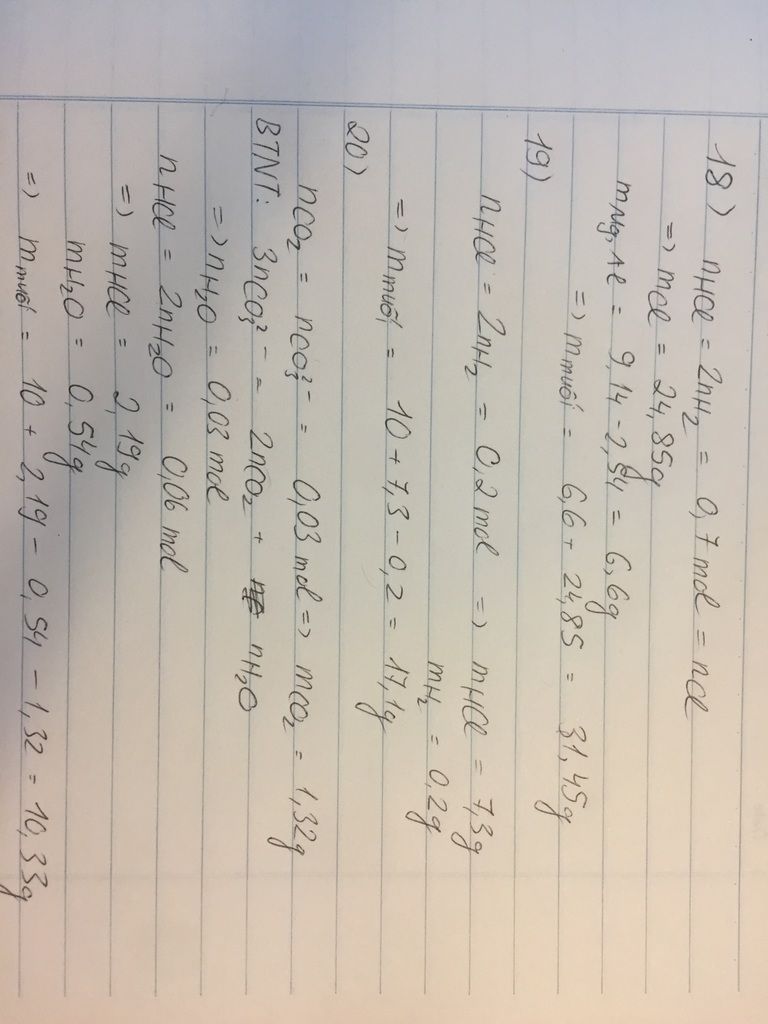 18) nHCl = 2nH₂ = 0,7 mol = nCl
=) mCl = 24,85g
mMg, Al = 9,14 - 2,54 = 6,6g
=) mmuối = 6,6 + 24,85 = 31,45g
19)
nHCl = 2nH₂ = 0,2 mol =) mHCl = 7,3g
mH₂ = 0,2g
=) mmuối = 10 + 7,3 - 0,2 = 17,1g
20)
nCO₂ = nCO₃²⁻ = 0,03 mol =) mCO₂ = 1,32g
BTNT: 3nCO₃²⁻ = 2nCO₂ + nH₂O
=) nH₂O = 0,03 mol
nHCl = 2nH₂O = 0,06 mol
=) mHCl = 2,19g
mH₂O = 0,54g
=) mmuối = 10 + 2,19 - 0,54 - 1,32 = 10,33g